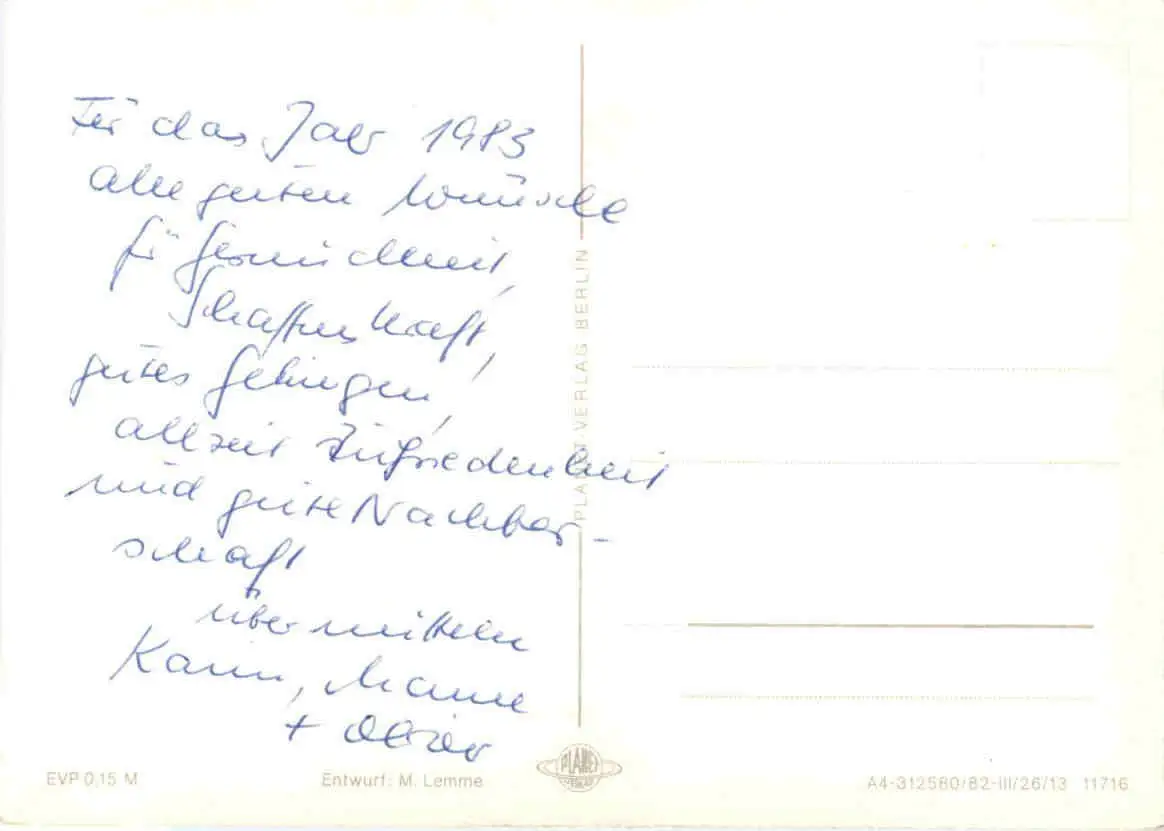 Für das Jahr 1983
alle guten Wünsche
für Gesundheit,
Schaffenskraft,
gutes Gelingen,
allzeit Zufriedenheit
und gute Nachbar-
schaft
übermitteln
Karin, Manne
+
PLANET-VERLAG BERLIN
EVP 0,15 M
Entwurf: M. Lemme
PLANET
A4-312580/82-III/26/13 11716